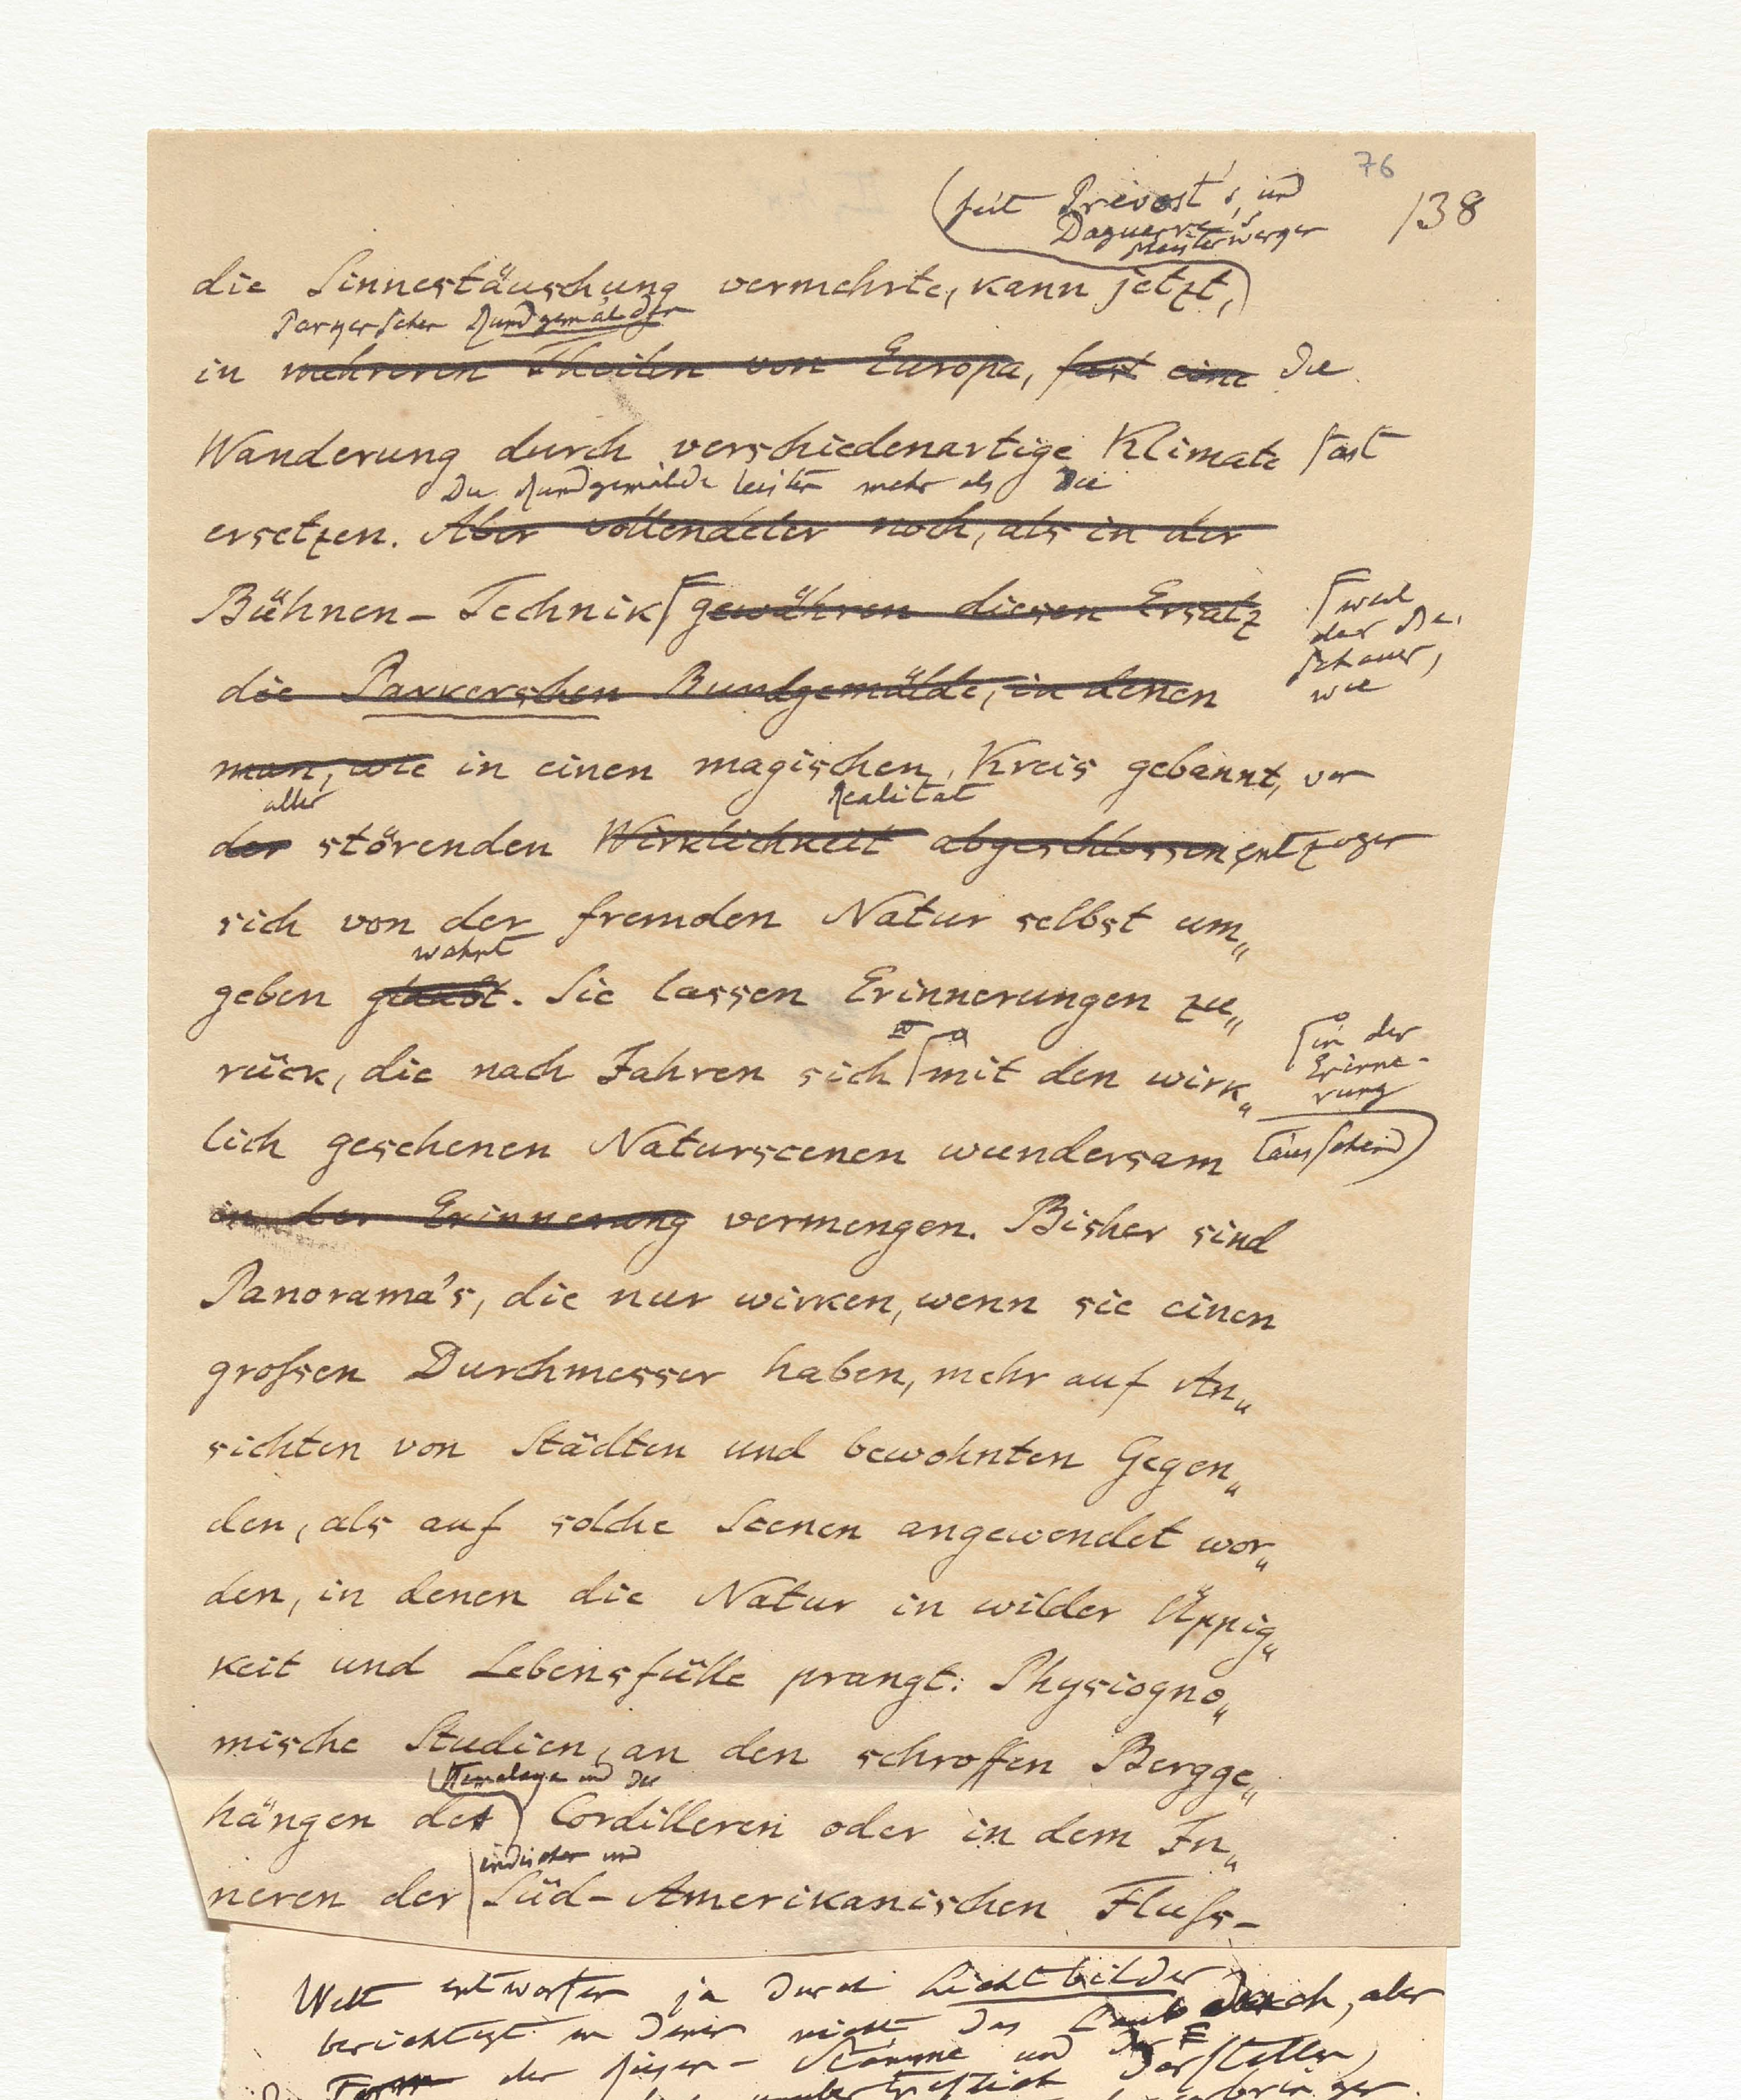 76
138
(seit Prévost's, und
Daguerre's
Meisterwerken
die Sinnestäuschung vermehrte, kann jetzt,)
Parkerschen Rundgemälden
in mehreren Theilen von Europa, fast eine die
Wanderung durch verschiedenartige Klimate fast
Die Rundgemälde leisten mehr als die
ersetzen. Aber vollendeter noch, als in der
Bühnen-Technik gewähren diesen Ersatz
weil
der Be-
schauer,
wie
die Parkerschen Rundgemälde, in denen
man, wie in einen magischen Kreis gebannt, von
aller Realität
der störenden Wirklichkeit abgeschlossen, entzogen
sich von der fremden Natur selbst um„
wähnt
geben glaubt. Sie lassen Erinnerungen zu„
rück, die nach Jahren sich mit den wirk„
in der
Erinne-
rung
lich gesehenen Naturscenen wundersam täuschend
in der Erinnerung vermengen. Bisher sind
Panorama's, die nur wirken, wenn sie einen
großen Durchmesser haben, mehr auf An„
sichten von Städten und bewohnten Gegen„
den, als auf solche Scenen angewendet wor„
den, in denen die Natur in wilder Üppig„
keit und Lebensfülle prangt. Physiogno„
mische Studien, an den schroffen Bergge„
Himalaya und der
hängen des Cordilleren oder in dem In„
indischen und
neren der Süd-Amerikanischen Fluß-
Welt entworfen ja durch Lichtbilder
berichtigt in denen nicht das Laubdach, aber
Form der Riesen-Stämme und der darstellen,
unübertrefflich